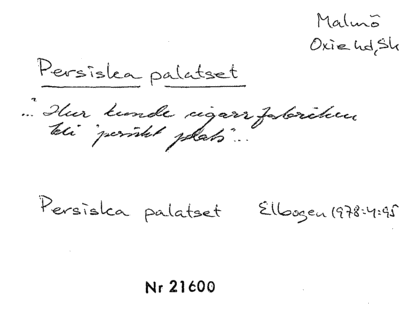 Malmö
Oxie hd, Sk
Persiska palatset
..."Hur kunde cigarrfabriken
bli "persiskt plats"...
Persiska palatset Elbogen 1978:4:95
Nr 21600